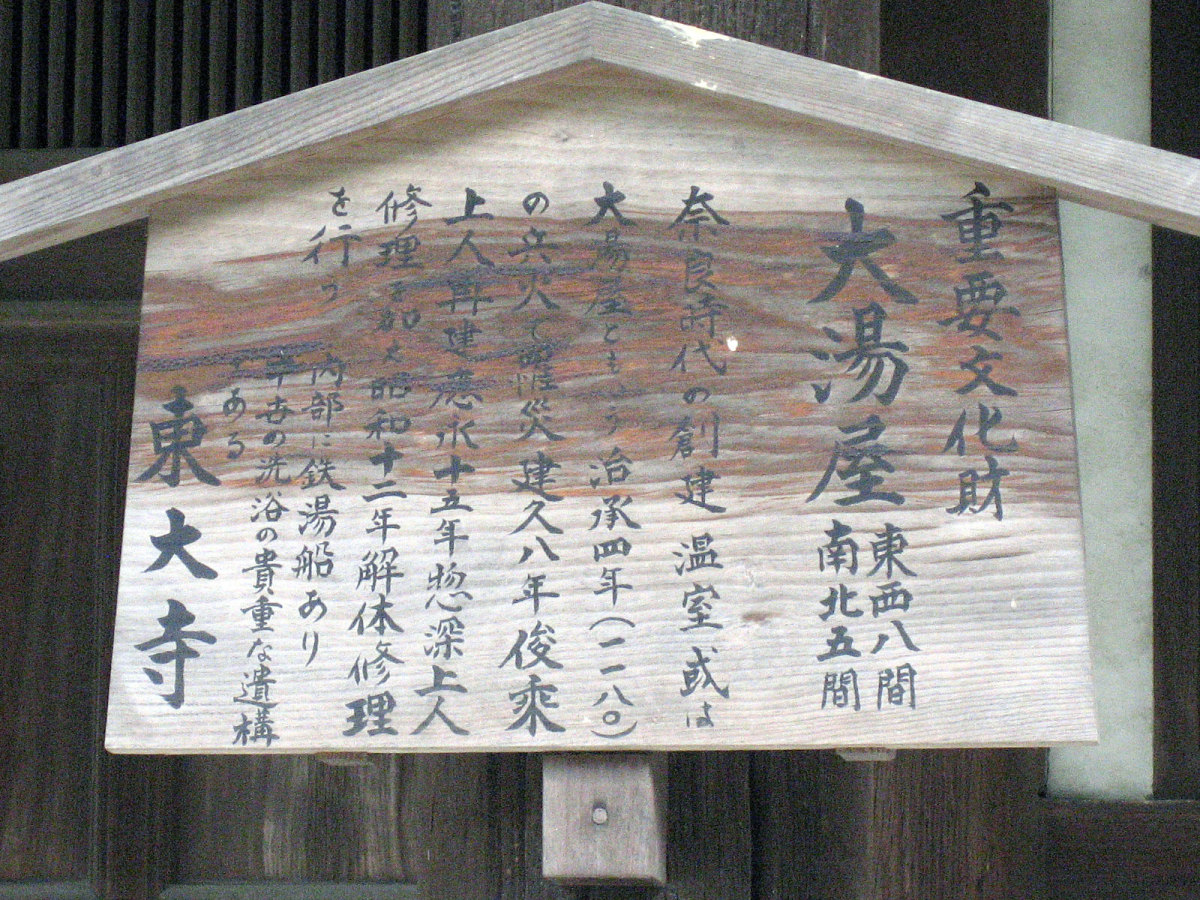 重要文化財
大湯屋 東西八間
南北五間
奈良時代の創建 温室或は
大湯屋ともゆう 治承四年(一一八〇)
の兵火で罹災 建久八年俊乗
上人再建 應永十五年惣深上人
修理を加え昭和十二年解体修理
を行う
内部に鉄湯船あり
中世の洗浴の貴重な遺構
である
東大寺